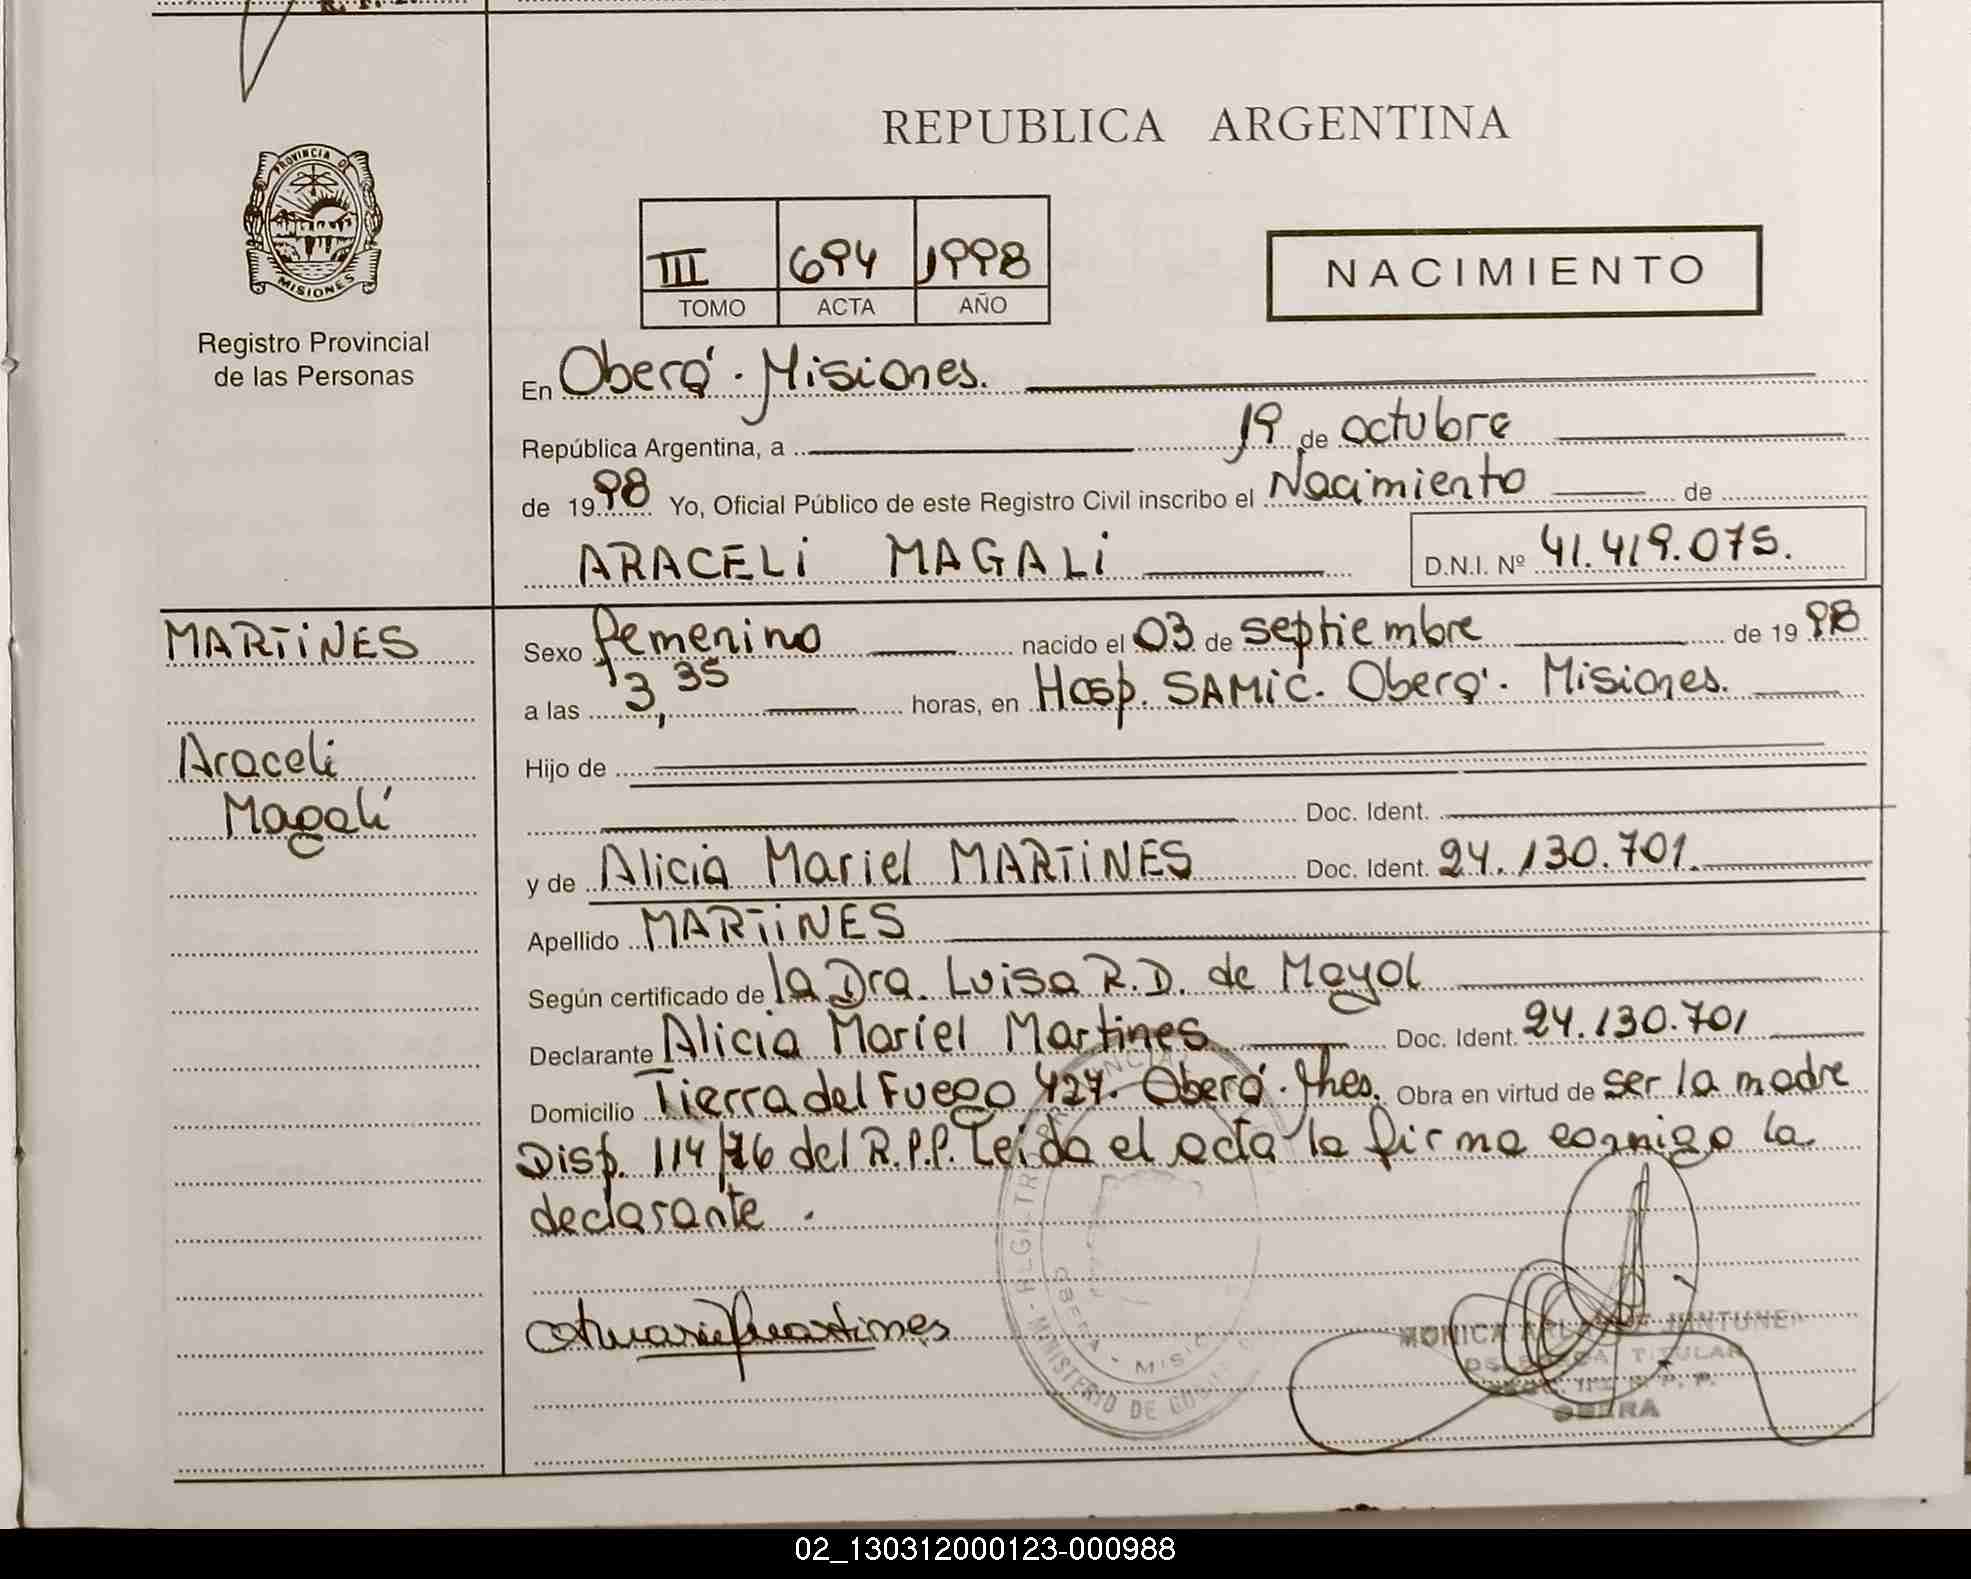 REPUBLICA ARGENTINA
PROVINCIA DE
MISIONES
Registro Provincial
de las Personas
III 694 1998
TOMO ACTA AÑO
NACIMIENTO
En Oberá. Misiones.
República Argentina, a 19 de octubre
de 1998 Yo, Oficial Público de este Registro Civil inscribo el Nacimiento de
ARACELi MAGALi D.N.I. Nº 41.419.075.
MARTiNES
Araceli
Magalí
Sexo femenino nacido el 03 de septiembre de 1998
a las 3,35 horas, en Hosp. SAMIC. Oberá. Misiones.
Hijo de
Doc. Ident.
y de Alicia Mariel MARTiNES Doc. Ident. 24.130.701.
Apellido MARTiNES
Según certificado de la Dra. Luisa R.D. de Mayol
Declarante Alicia Mariel Martines Doc. Ident. 24.130.701
Domicilio Tierra del Fuego 427. Oberá. Mnes. Obra en virtud de ser la madre
Disp. 114/76 del R.P.P. Leida el acta la firma conmigo la
declarante.
MINISTERIO DE
OBERA - MISIO
MONICA
TITULAR
OBERA
02_130312000123-000988